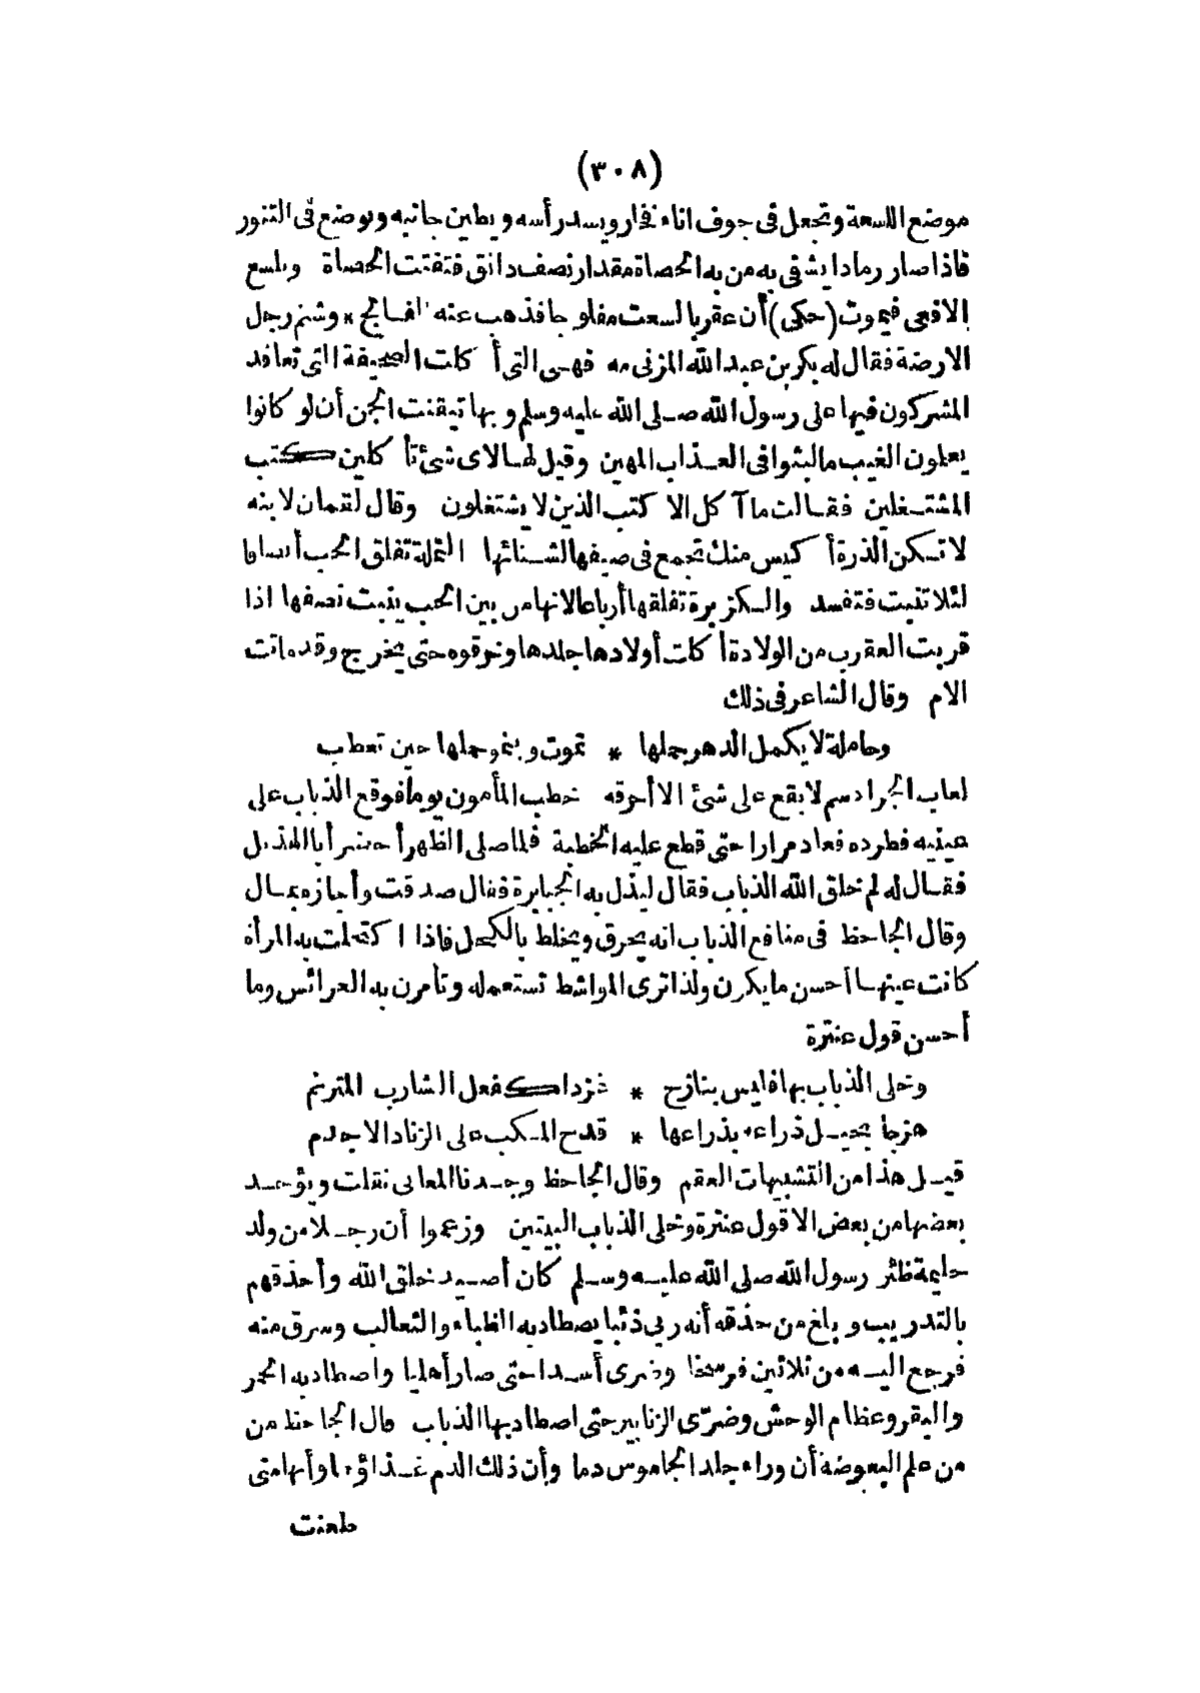 (٣٠٨)
موضع اللسعة وتجعل فى جوف اناء فخار ويسد رأسه ويطين جانبه ويوضع فى التنور
فاذا صار رمادا يشفى به من به الحصاة مقدار نصف دانق فتفتت الحصاة وتلسع
الافعى فيموت (حكى) أن عقربا لسعت مفلوجا فذهب عنه الفالج * وشتم رجل
الارضة فقال له بكر بن عبد الله المزنى مه فهى التى أكلت الصحيفة التى تعاقد
المشركون فيها على رسول الله صلى الله عليه وسلم وبها تيقنت الجن أن لو كانوا
يعلمون الغيب ما لبثوا فى العذاب المهين وقيل لها لاى شئ تأكلين كتب
المشتغلين فقالت ما آكل الا كتب الذين لا يشتغلون وقال لقمان لابنه
لا تكن الذرة أكيس منك تجمع فى صيفها لشتائها النملة تفلق الحب أنصافا
لئلا تنبت فتفسد والكزبرة تفلقها أرباعا لانها من بين الحب ينبت نصفها اذا
قربت العقرب من الولادة أكلت أولادها جلدها وخرقوه حتى يخرج وقد ماتت
الام وقال الشاعر فى ذلك
وحاملة لا يكمل الدهر حملها * تموت وينمو حملها حين تعطب
لعاب الجراد سم لا يقع على شئ الا أحرقه خطب المأمون يوما فوقع الذباب على
عينيه فطرده فعاد مرارا حتى قطع عليه الخطبة فلما صلى الظهر أحضر أبا الهذيل
فقال له لم خلق الله الذباب فقال ليذل به الجبابرة فقال صدقت وأجازه بمال
وقال الجاحظ فى منافع الذباب انه يحرق ويخلط بالكحل فاذا اكتحلت به المرأة
كانت عينها أحسن ما يكون ولذا ترى المواشط تستعمله وتأمرن به العرائس وما
أحسن قول عنترة
وخلى الذباب بها فليس بنازح * غردا كفعل الشارب المترنم
هزجا يحيل ذراعه بذراعها * قدح المكب على الزناد الاجدم
قيل هذا من التشبيهات العقم وقال الجاحظ وجدنا المعانى نقلت ويؤخذ
بعضها من بعض الا قول عنترة وخلى الذباب البيتين وزعموا أن رجلا من ولد
حليمة ظئر رسول الله صلى الله عليه وسلم كان أصيد خلق الله وأحذقهم
بالتدريب وبلغ من حذقه أنه ربى ذئبا يصطاد به الظباء والثعالب وسرق منه
فرجع اليه من ثلاثين فرسخا وضرى أسدا حتى صار أهليا واصطاد به الحمر
والبقر وعظام الوحش وضرّى الزنابير حتى اصطاد بها الذباب قال الجاحظ من
من علم البعوضة أن وراء جلد الجاموس دما وأن ذلك الدم غذاؤها وأنها متى
طعنت